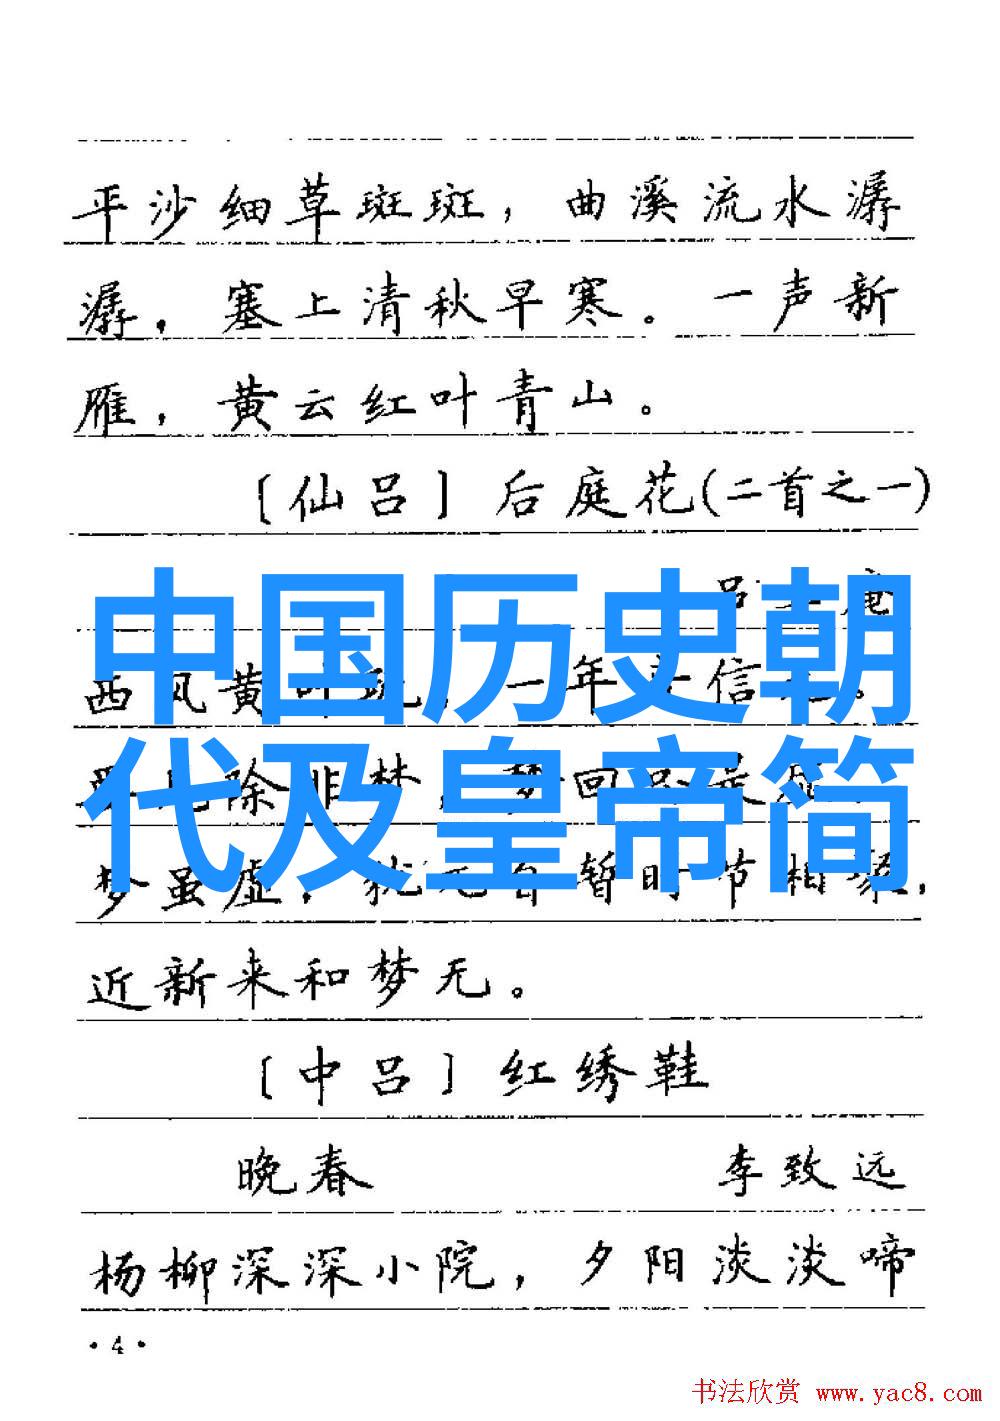 平沙细草斑斑，曲溪流水潺
潺，塞上清秋早寒。一声新
雁，黄云红叶青山。
〔仙吕〕后庭花(二首之一)
吕止庵
西风黄叶疏，一年音信无。
要见除非梦，梦回总是虚。
梦虽虚，犹兀自暂时节相聚，
近新来和梦无。
〔中吕〕红绣鞋
晚春 李致远
杨柳深深小院，夕阳淡淡啼
·4·
中国历史朝
代及皇帝简
书法欣赏 www.yac8.com